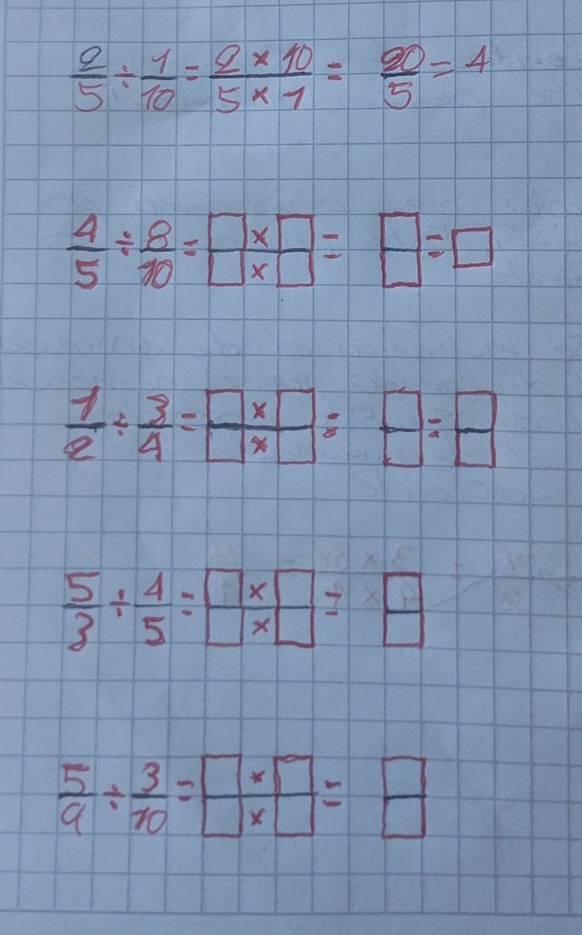 2/5 ÷ 1/10 = 2 × 10/5 × 1 = 20/5 = 4
4/5 ÷ 8/10 = □ × □/□ × □ = □/□ = □
1/2 ÷ 3/4 = □ × □/□ × □ = □/□ = □/□
5/3 ÷ 4/5 = □ × □/□ × □ = □/□
5/9 ÷ 3/10 = □ × □/□ × □ = □/□